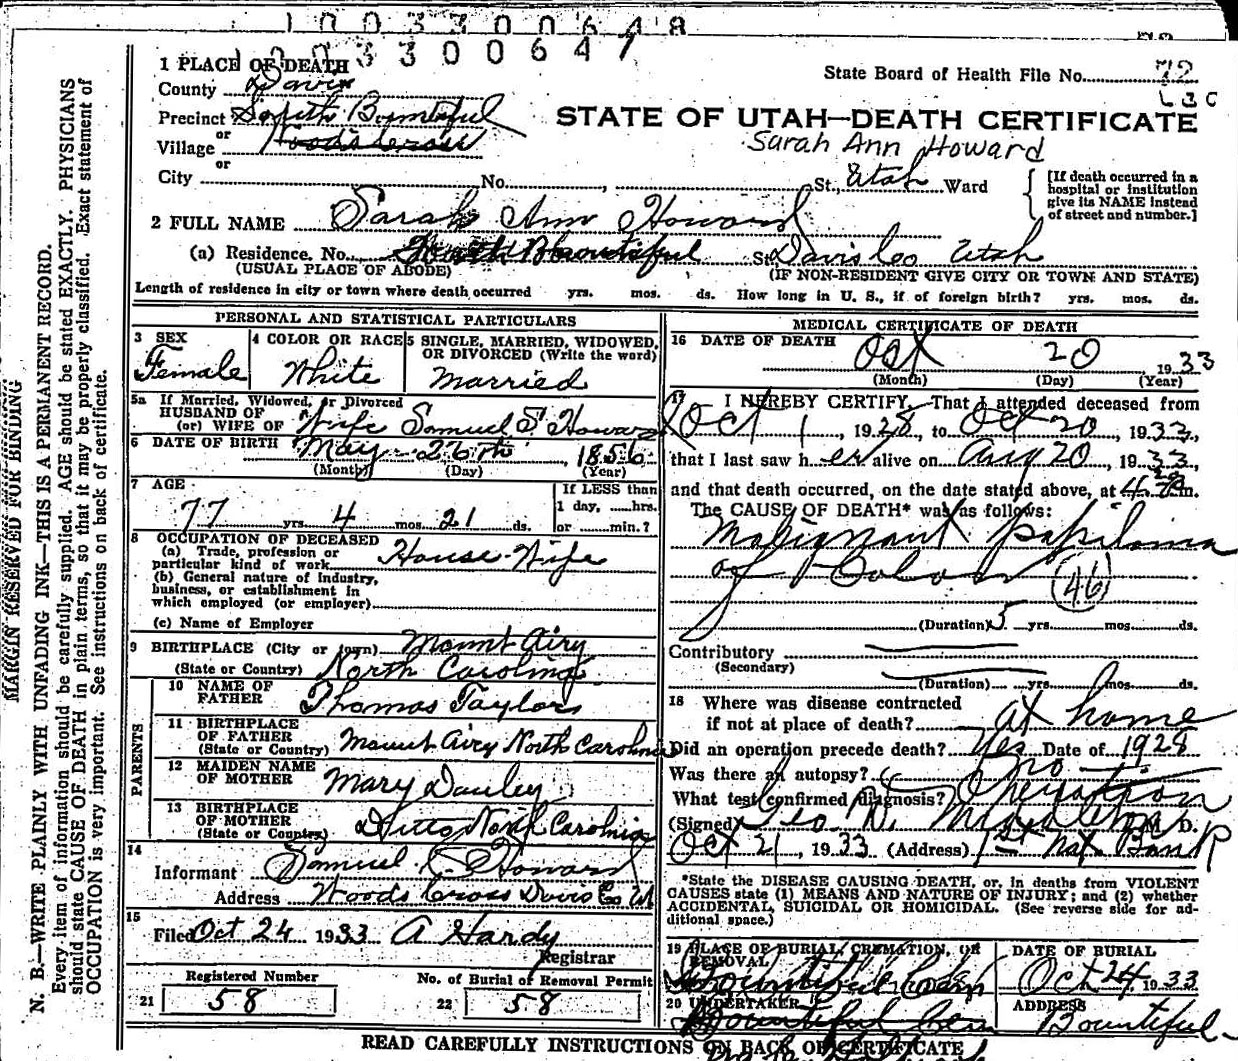 1003300648
1003300647
1 PLACE OF DEATH
State Board of Health File No. 72
County Davis
Precinct South Bountiful
STATE OF UTAH—DEATH CERTIFICATE
or
Village Woods Cross
Sarah Ann Howard
or
City No. , St., Utah Ward
[If death occurred in a hospital or institution give its NAME instead of street and number.]
2 FULL NAME Sarah Ann Howard
(a) Residence. No. South Bountiful St. Davis Co Utah
(USUAL PLACE OF ABODE) (IF NON-RESIDENT GIVE CITY OR TOWN AND STATE)
Length of residence in city or town where death occurred yrs. mos. ds. How long in U. S., if of foreign birth? yrs. mos. ds.
MARGIN RESERVED FOR BINDING
N. B.—WRITE PLAINLY WITH UNFADING INK—THIS IS A PERMANENT RECORD.
Every item of information should be carefully supplied. AGE should be stated EXACTLY. PHYSICIANS
should state CAUSE OF DEATH in plain terms, so that it may be properly classified. Exact statement of
OCCUPATION is very important. See instructions on back of certificate.
PERSONAL AND STATISTICAL PARTICULARS
3 SEX
Female
4 COLOR OR RACE
White
5 SINGLE, MARRIED, WIDOWED,
OR DIVORCED (Write the word)
Married
5a If Married, Widowed, or Divorced
HUSBAND OF
(or) WIFE OF Wife Samuel S Howard
6 DATE OF BIRTH May 26th, 1856
(Month) (Day) (Year)
7 AGE
77 yrs. 4 mos. 21 ds.
If LESS than
1 day, ......hrs.
or ......min.?
8 OCCUPATION OF DECEASED
(a) Trade, profession or
particular kind of work House Wife
(b) General nature of industry,
business, or establishment in
which employed (or employer)
(c) Name of Employer
9 BIRTHPLACE (City or town) Mount Airy
(State or Country) North Carolina
PARENTS
10 NAME OF
FATHER Thomas Taylor
11 BIRTHPLACE
OF FATHER
(State or Country) Mount Airy North Carolina
12 MAIDEN NAME
OF MOTHER Mary Dauley
13 BIRTHPLACE
OF MOTHER
(State or Country) Ditto North Carolina
14
Informant Samuel Howard
Address Woods Cross Davis Co Ut
15
Filed Oct 24 1933 A Hardy
Registrar
Registered Number No. of Burial of Removal Permit
21 58 22 58
MEDICAL CERTIFICATE OF DEATH
16 DATE OF DEATH
Oct 20 1933
(Month) (Day) (Year)
17 I HEREBY CERTIFY, That I attended deceased from
Oct 1, 1928, to Oct 20, 1933,
that I last saw her alive on Aug 20, 1933,
and that death occurred, on the date stated above, at 4 m.
The CAUSE OF DEATH* was as follows:
Malignant Papiloma
of Colon (46)
(Duration) 5 yrs. mos. ds.
Contributory
(Secondary)
(Duration) yrs. mos. ds.
18 Where was disease contracted
if not at place of death? at home
Did an operation precede death? Yes Date of 1928
Was there an autopsy? no
What test confirmed diagnosis? Operation
(Signed) Geo D. M. D.
Oct 21, 1933 (Address) 1st Nat Bank
*State the DISEASE CAUSING DEATH, or, in deaths from VIOLENT
CAUSES state (1) MEANS AND NATURE OF INJURY; and (2) whether
ACCIDENTAL, SUICIDAL OR HOMICIDAL. (See reverse side for ad-
ditional space.)
19 PLACE OF BURIAL, CREMATION, OR
REMOVAL
Bountiful Cem
DATE OF BURIAL
Oct 24, 1933
20 UNDERTAKER
Bountiful Cem
ADDRESS
Bountiful
READ CAREFULLY INSTRUCTIONS ON BACK OF CERTIFICATE